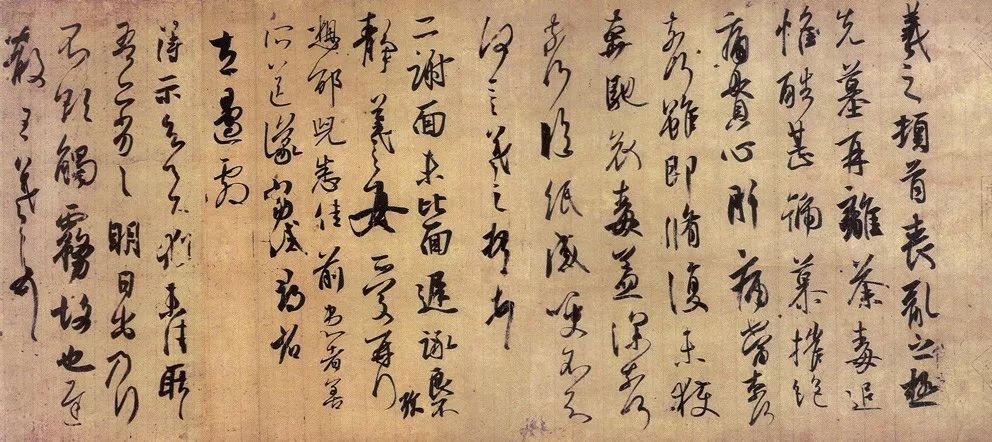 羲之頓首喪亂之極
先墓再離荼毒追
惟酷甚號慕摧絶
痛貫心肝痛當奈何
奈何雖即脩復未獲
奔馳哀毒益深奈何
奈何臨紙感哽不知
何言羲之頓首頓首
二謝面未比面遲詠良不
珍
靜羲之女愛再拜
想邵兒悉佳前患者善
所送議當試尋省
左邊劇
得示知足下猶未佳耿耿
吾亦劣劣明日出乃行
不欲觸霧故也遲
散王羲之頓首